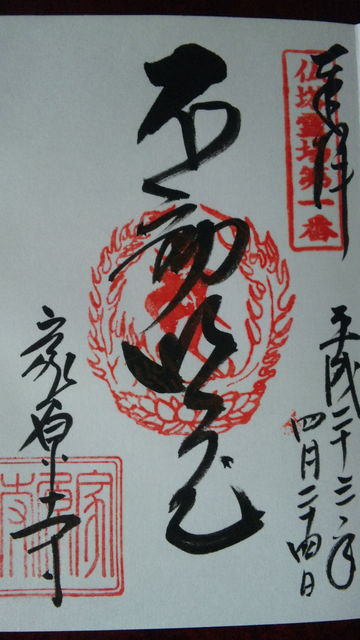 奉拝
仏塔霊場第一番
平成二十三年
四月二十四日
不動明王
家原寺
家原寺